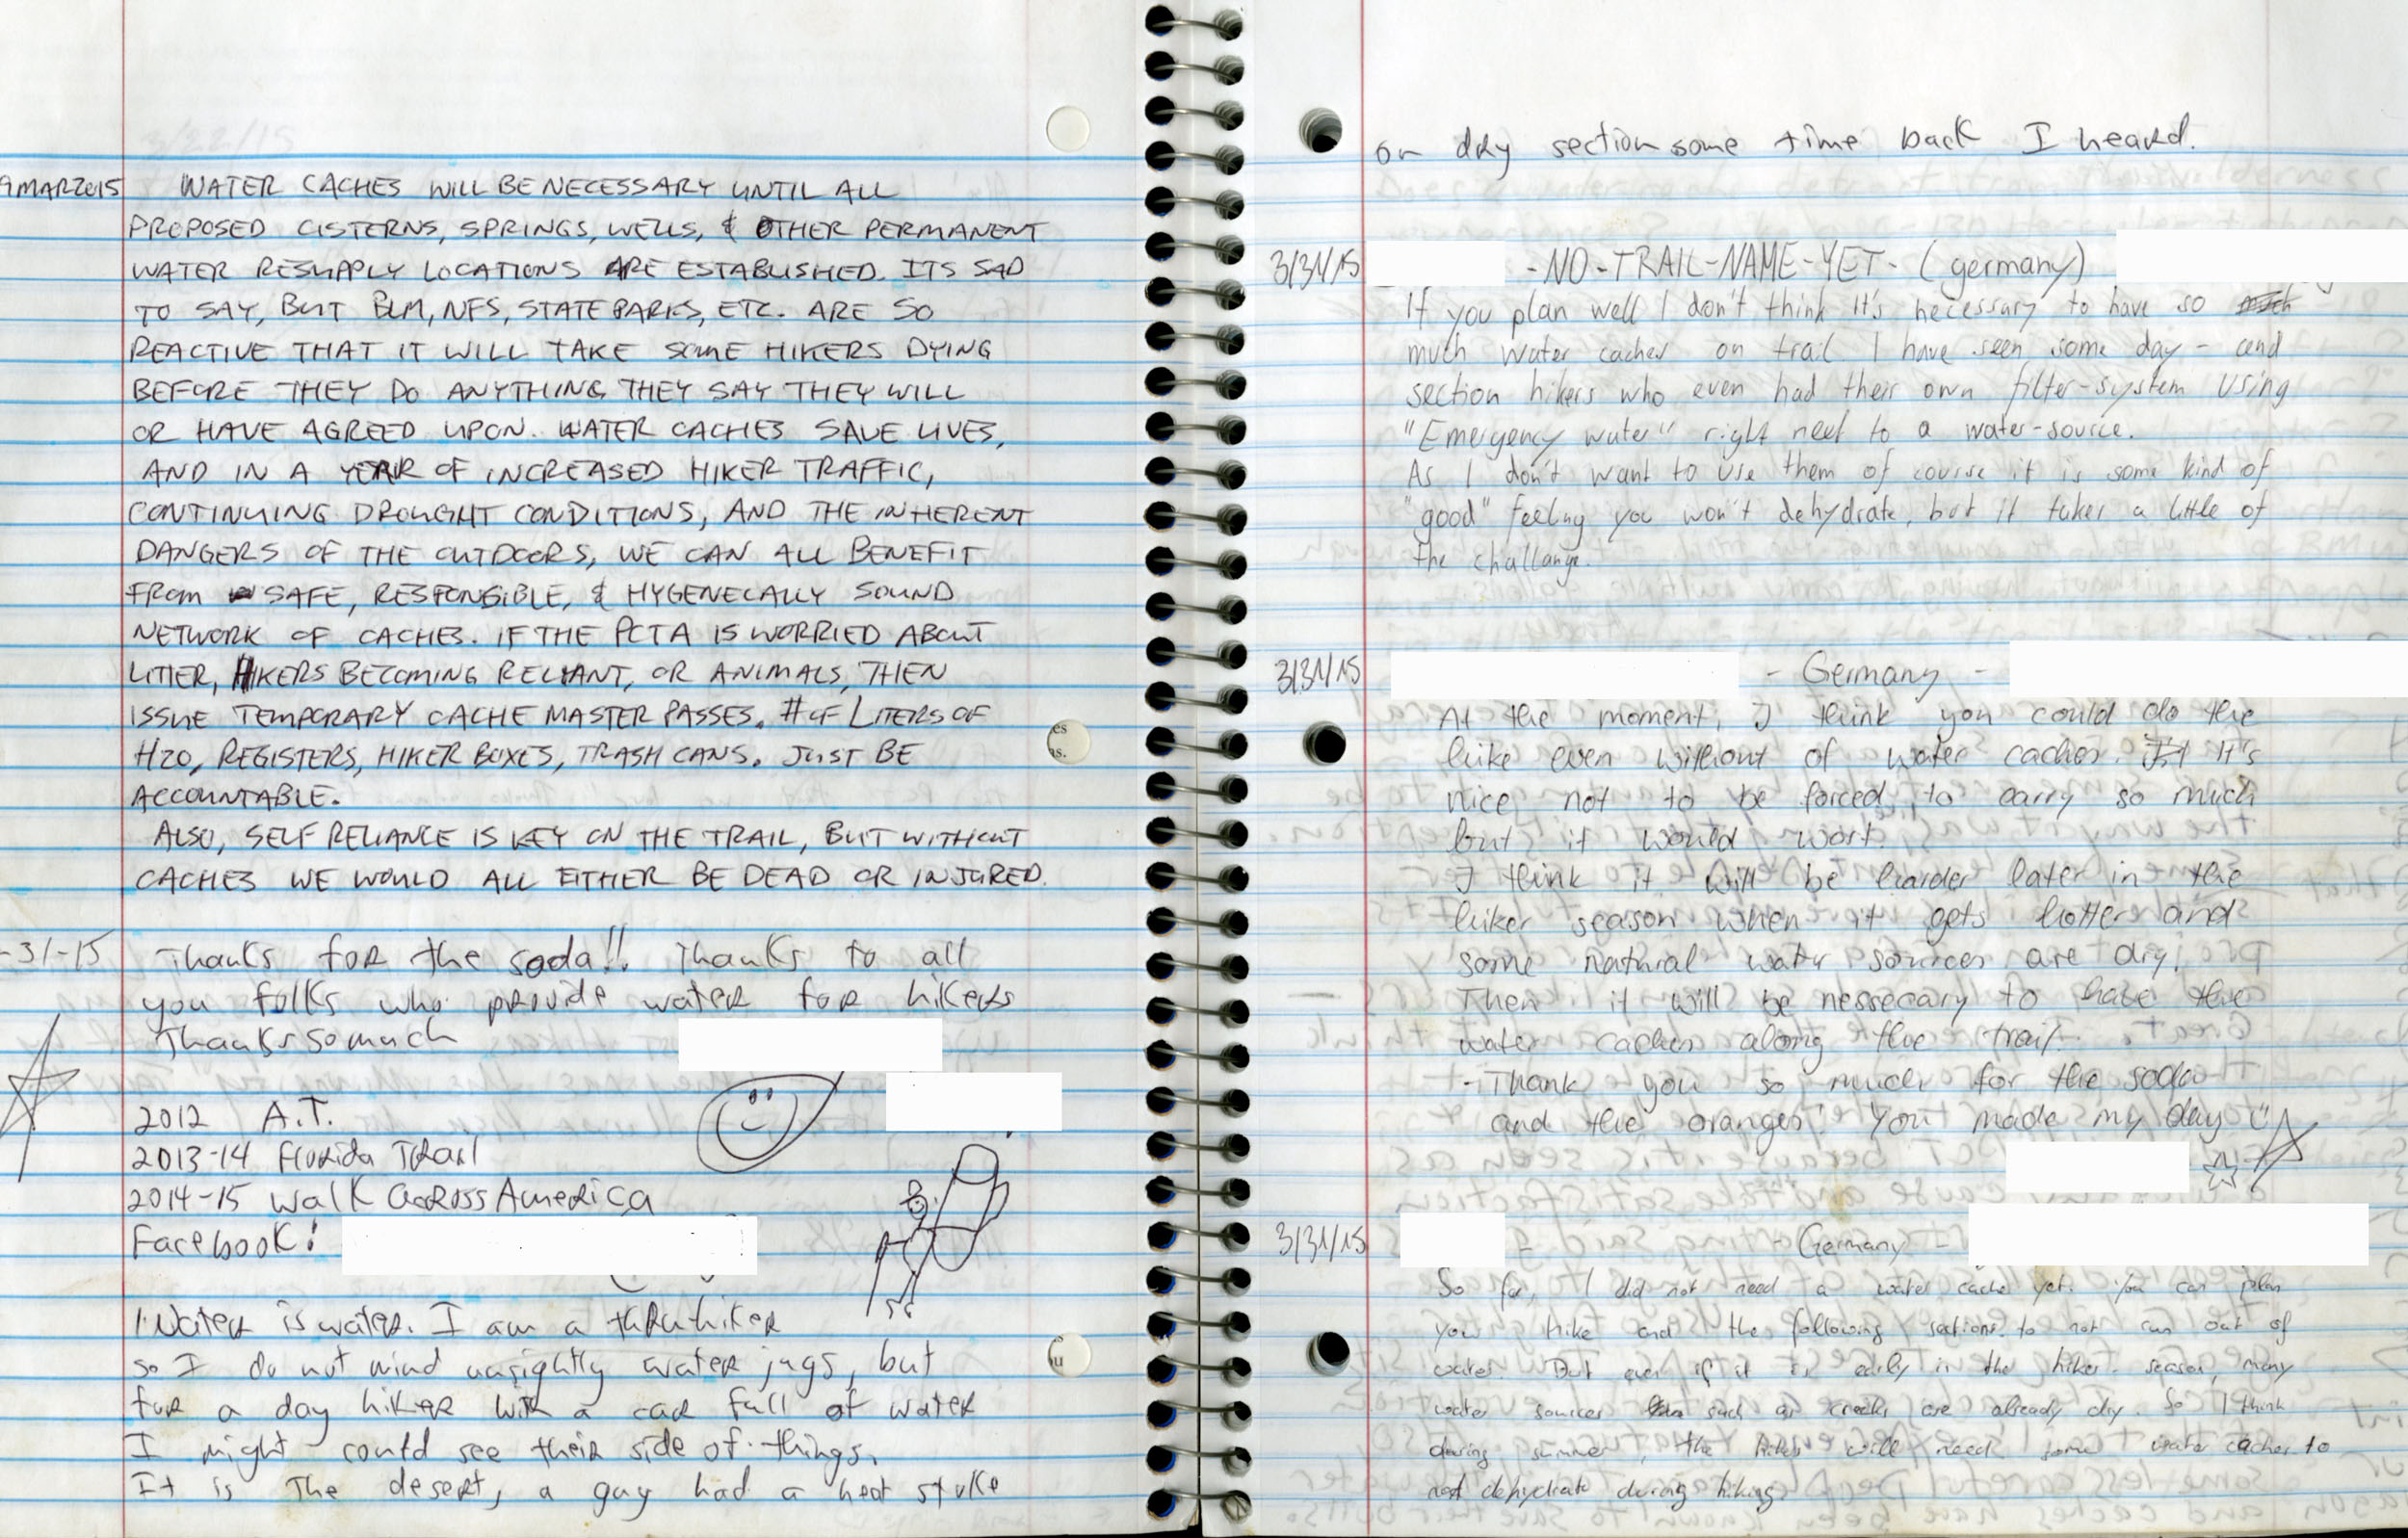 9MAR2015 WATER CACHES WILL BE NECESSARY UNTIL ALL
PROPOSED CISTERNS, SPRINGS, WELLS, & OTHER PERMANENT
WATER RESUPPLY LOCATIONS ARE ESTABLISHED. ITS SAD
TO SAY, BUT BLM, NFS, STATE PARKS, ETC. ARE SO
REACTIVE THAT IT WILL TAKE SOME HIKERS DYING
BEFORE THEY DO ANYTHING THEY SAY THEY WILL
OR HAVE AGREED UPON. WATER CACHES SAVE LIVES,
AND IN A YEAR OF INCREASED HIKER TRAFFIC,
CONTINUING DROUGHT CONDITIONS, AND THE INHERENT
DANGERS OF THE OUTDOORS, WE CAN ALL BENEFIT
FROM SAFE, RESPONSIBLE, & HYGENECALLY SOUND
NETWORK OF CACHES. IF THE PCTA IS WORRIED ABOUT
LITTER, HIKERS BECOMING RELIANT, OR ANIMALS, THEN
ISSUE TEMPORARY CACHE MASTER PASSES. # OF LITERS OF
H2O, REGISTERS, HIKER BOXES, TRASH CANS. JUST BE
ACCOUNTABLE.
ALSO, SELF RELIANCE IS KEY ON THE TRAIL, BUT WITHOUT
CACHES WE WOULD ALL EITHER BE DEAD OR INJURED.
-31-15 Thanks for the soda!! Thanks to all
you folks who provide water for hikers
Thanks so much
2012 A.T.
2013-14 Florida Trail
2014-15 Walk Across America
Facebook:
Water is water. I am a thru hiker
so I do not mind unsightly water jugs, but
for a day hiker with a car full of water
I might could see their side of things.
It is The desert, a guy had a heat stroke
on dry section some time back I heard.
3/31/15 -NO-TRAIL-NAME-YET- (germany)
If you plan well I don't think it's necessary to have so much
much water caches on trail. I have seen some day- and
section hikers who even had their own filter-system using
"Emergency water" right next to a water-source.
As I don't want to use them of course it is some kind of
"good" feeling you won't dehydrate, but it takes a little of
the challange.
3/31/15 - Germany -
At the moment, I think you could do the
hike even without of water caches. It's
nice not to be forced to carry so much
but it would work.
I think it will be harder later in the
hiker season when it gets hotter and
some natural water sources are dry!
Then it will be nessecary to have the
water caches along the trail.
- Thank you so much for the soda
and the oranges! You made my day
3/31/15 - Germany -
So far, I did not need a water cache yet. You can plan
your hike and the following sections to not run out of
water. But even if it is early in the hiker season, many
water sources such as creeks are already dry. So I think
during summer, the hikers will need some water caches to
not dehydrate during hiking.